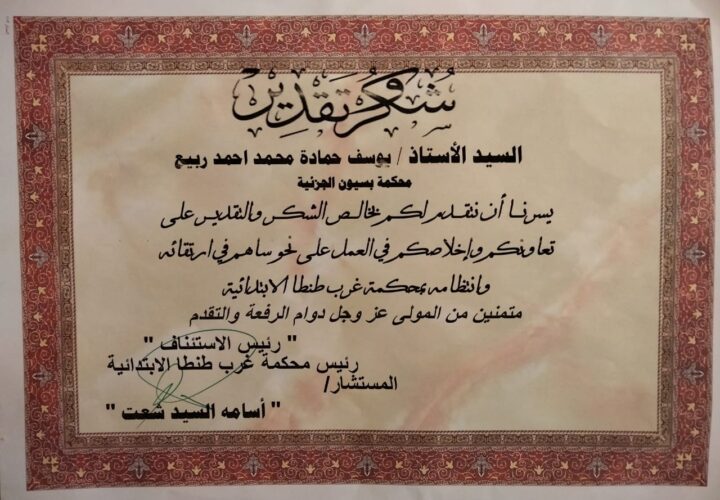 شكر وتقدير
السيد الأستاذ / يوسف حمادة محمد احمد ربيع
محكمة بسيون الجزئية
يسرنا أن نتقدم لكم بخالص الشكر والتقدير على
تعاونكم وإخلاصكم في العمل على نحو ساهم في ارتقائه
وانتظامه بمحكمة غرب طنطا الابتدائية
متمنين من المولى عز وجل دوام الرفعة والتقدم
" رئيس الاستئناف "
رئيس محكمة غرب طنطا الابتدائية
المستشار/
" أسامه السيد شعت "